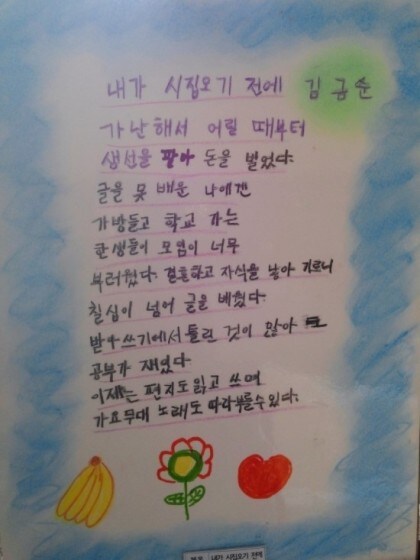 내가 시집오기 전에 김금순
가난해서 어릴 때부터
생선을 팔아 돈을 벌었다.
글을 못 배운 나에겐
가방들고 학교 가는
학생들이 모염이 너무
부러웠다. 결혼하고 자식을 낳아 기르니
칠십이 넘어 글을 배웠다.
받아쓰기에서 틀린 것이 많아
공부가 재밌다
이제는 편지도 읽고 쓰며
가요무대 노래도 따라부를수있다.
내가 시집오기 전에